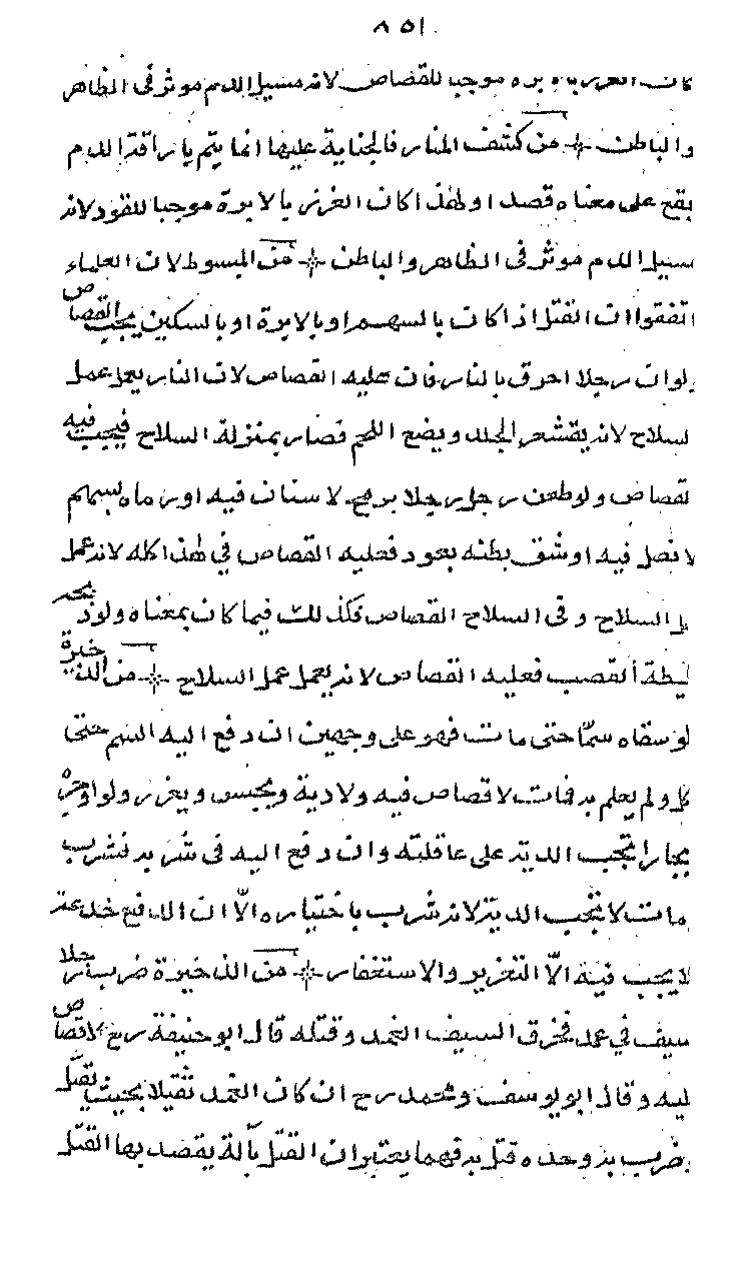 ٨٥١
كان الغرز بالابرة موجبا للقصاص لانه مسيل الدم موثر فى الظاهر
والباطن من كشف المنار فالجناية عليها انما يتم باراقة الدم
يقع على معناه قصدا ولهذا كان الغرز بالابرة موجبا للقود لانه
مسيل الدم موثر فى الظاهر والباطن من المبسوط لان العلماء
اتفقوا ان القتل اذا كان بالسهم او بالابرة او بالسكين يجب القصاص
ولو ان رجلا احرق بالنار فان عليه القصاص لان النار يعمل عمل
السلاح لانه يقشعر الجلد ويضع اللحم فصار بمنزلة السلاح فيجب فيه
القصاص ولو طعن رجل رجلا برمح لا سنان فيه او رماه بسهم
لا نصل فيه او شق بطنه بعود فعليه القصاص في هذا كله لانه عمل
السلاح وفى السلاح القصاص فكذلك فيما كان بمعناه ولو ذبحه
بليطة القصب فعليه القصاص لانه يعمل عمل السلاح من الذخيرة
لو سقاه سمّا حتى مات فهو على وجهين ان دفع اليه السم حتى
اكل ولم يعلم به فمات لا قصاص فيه ولا دية ويحبس ويعزر ولو اوجره
ايجارا تجب الدية على عاقلته وان دفع اليه فى شربة فشرب
ومات لا تجب الدية لانه شرب باختياره الّا ان الدافع خدعة
لا يجب فيه الّا التعزير والاستغفار من الذخيرة ضرب رجلا
بسيف في غمد فخرق السيف الغمد وقتله قال ابو حنيفة رح لا قصاص
عليه وقال ابو يوسف ومحمد رح ان كان الغمد ثقيلا بحيث يقتل
بضرب به وحده قتل به فهما يعتبران القتل بآلة يقصد بها القتل